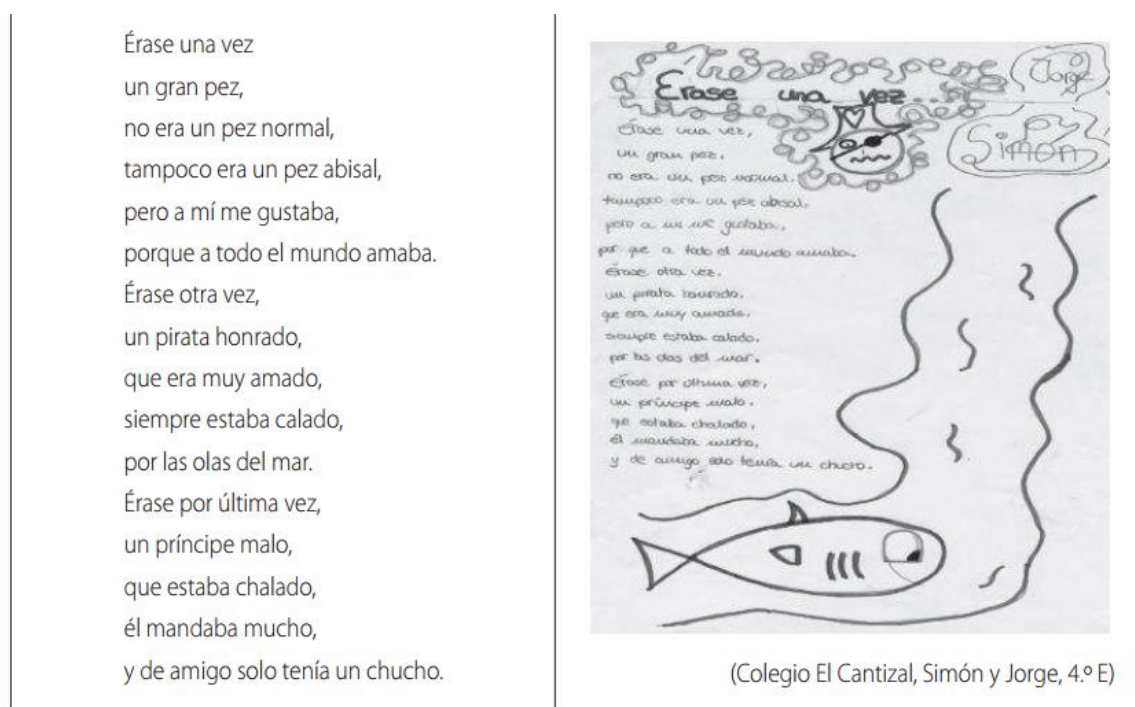 Érase una vez
un gran pez,
no era un pez normal,
tampoco era un pez abisal,
pero a mí me gustaba,
porque a todo el mundo amaba.
Érase otra vez,
un pirata honrado,
que era muy amado,
siempre estaba calado,
por las olas del mar.
Érase por última vez,
un príncipe malo,
que estaba chalado,
él mandaba mucho,
y de amigo solo tenía un chucho.
Erase una vez...
Jorge
Simón
Érase una vez,
un gran pez,
no era un pez normal,
tampoco era un pez abisal,
pero a mi me gustaba,
por que a todo el mundo amaba.
Érase otra vez,
un pirata honrado,
que era muy amado,
siempre estaba calado,
por las olas del mar.
Érase por última vez,
un príncipe malo,
que estaba chalado,
él mandaba mucho,
y de amigo solo tenía un chucho.
(Colegio El Cantizal, Simón y Jorge, 4.º E)